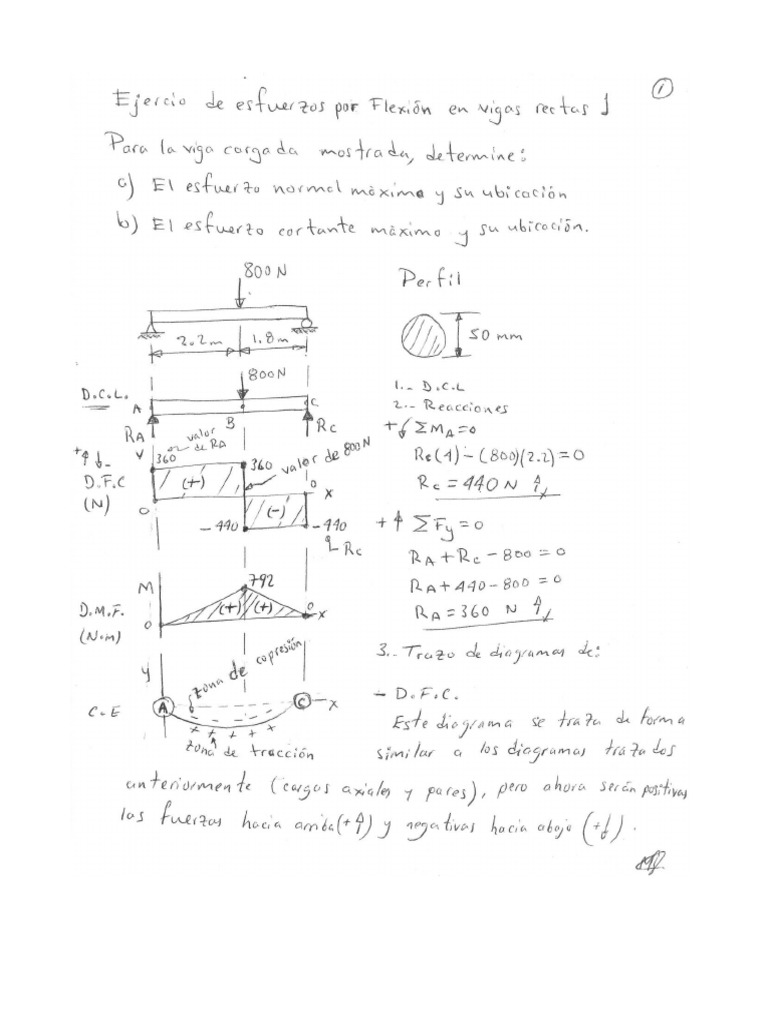 1
Ejercio de esfuerzos por Flexión en vigas rectas 1
Para la viga cargada mostrada, determine:
a) El esfuerzo normal máximo y su ubicación
b) El esfuerzo cortante máximo y su ubicación.
800 N
2.2 m
1.8 m
Perfil
50 mm
D.C.L.
800N
A
B
C
RA
RC
1.- D.C.L
2.- Reacciones
+ ΣMA=0
Rc(4) - (800)(2.2) = 0
Rc = 440 N
+ ΣFy=0
RA + Rc - 800 = 0
RA + 440 - 800 = 0
RA = 360 N
+ -
D.F.C
(N)
V
360
valor
de RA
(+)
360
valor de 800 N
0
0
X
(-)
-440
-440
Rc
M
792
D.M.F.
(N.m)
(+) (+)
0
0
X
3.- Trazo de diagramas de:
y
zona de copresión
C.E
A
C
X
+ + + + +
zona de tracción
- D.F.C.
Este diagrama se traza de forma
similar a los diagramas trazados
anteriormente (cargas axiales y pares), pero ahora serán positivas
las fuerzas hacia arriba (+) y negativas hacia abajo (+).